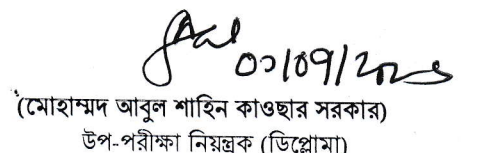 ০১/০9/২০২৫
(মোহাম্মদ আবুল শাহিন কাওছার সরকার)
উপ-পরীক্ষা নিয়ন্ত্রক (ডিপ্লোমা)